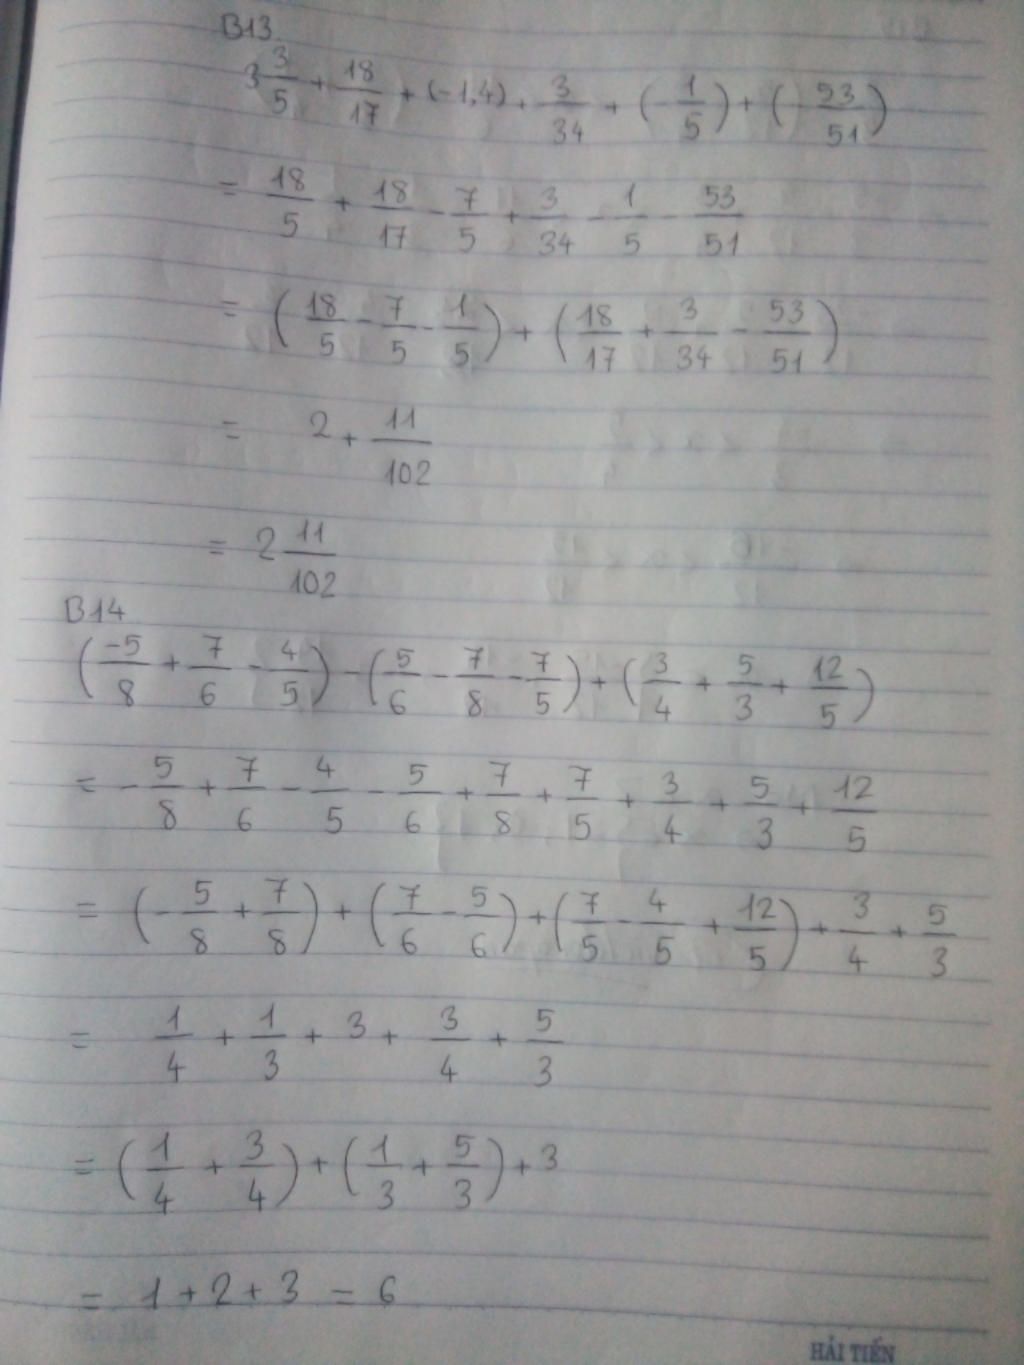 B13
3 3/5 + 18/17 + (-1,4) + 3/34 + (-1/5) + (-53/51)
= 18/5 + 18/17 - 7/5 + 3/34 - 1/5 - 53/51
= (18/5 - 7/5 - 1/5) + (18/17 + 3/34 - 53/51)
= 2 + 11/102
= 2 11/102
B14
(-5/8 + 7/6 - 4/5) - (5/6 - 7/8 - 7/5) + (3/4 + 5/3 + 12/5)
= - 5/8 + 7/6 - 4/5 - 5/6 + 7/8 + 7/5 + 3/4 + 5/3 + 12/5
= (- 5/8 + 7/8) + (7/6 - 5/6) + (7/5 - 4/5 + 12/5) + 3/4 + 5/3
= 1/4 + 1/3 + 3 + 3/4 + 5/3
= (1/4 + 3/4) + (1/3 + 5/3) + 3
= 1 + 2 + 3 = 6
HẢI TIẾN